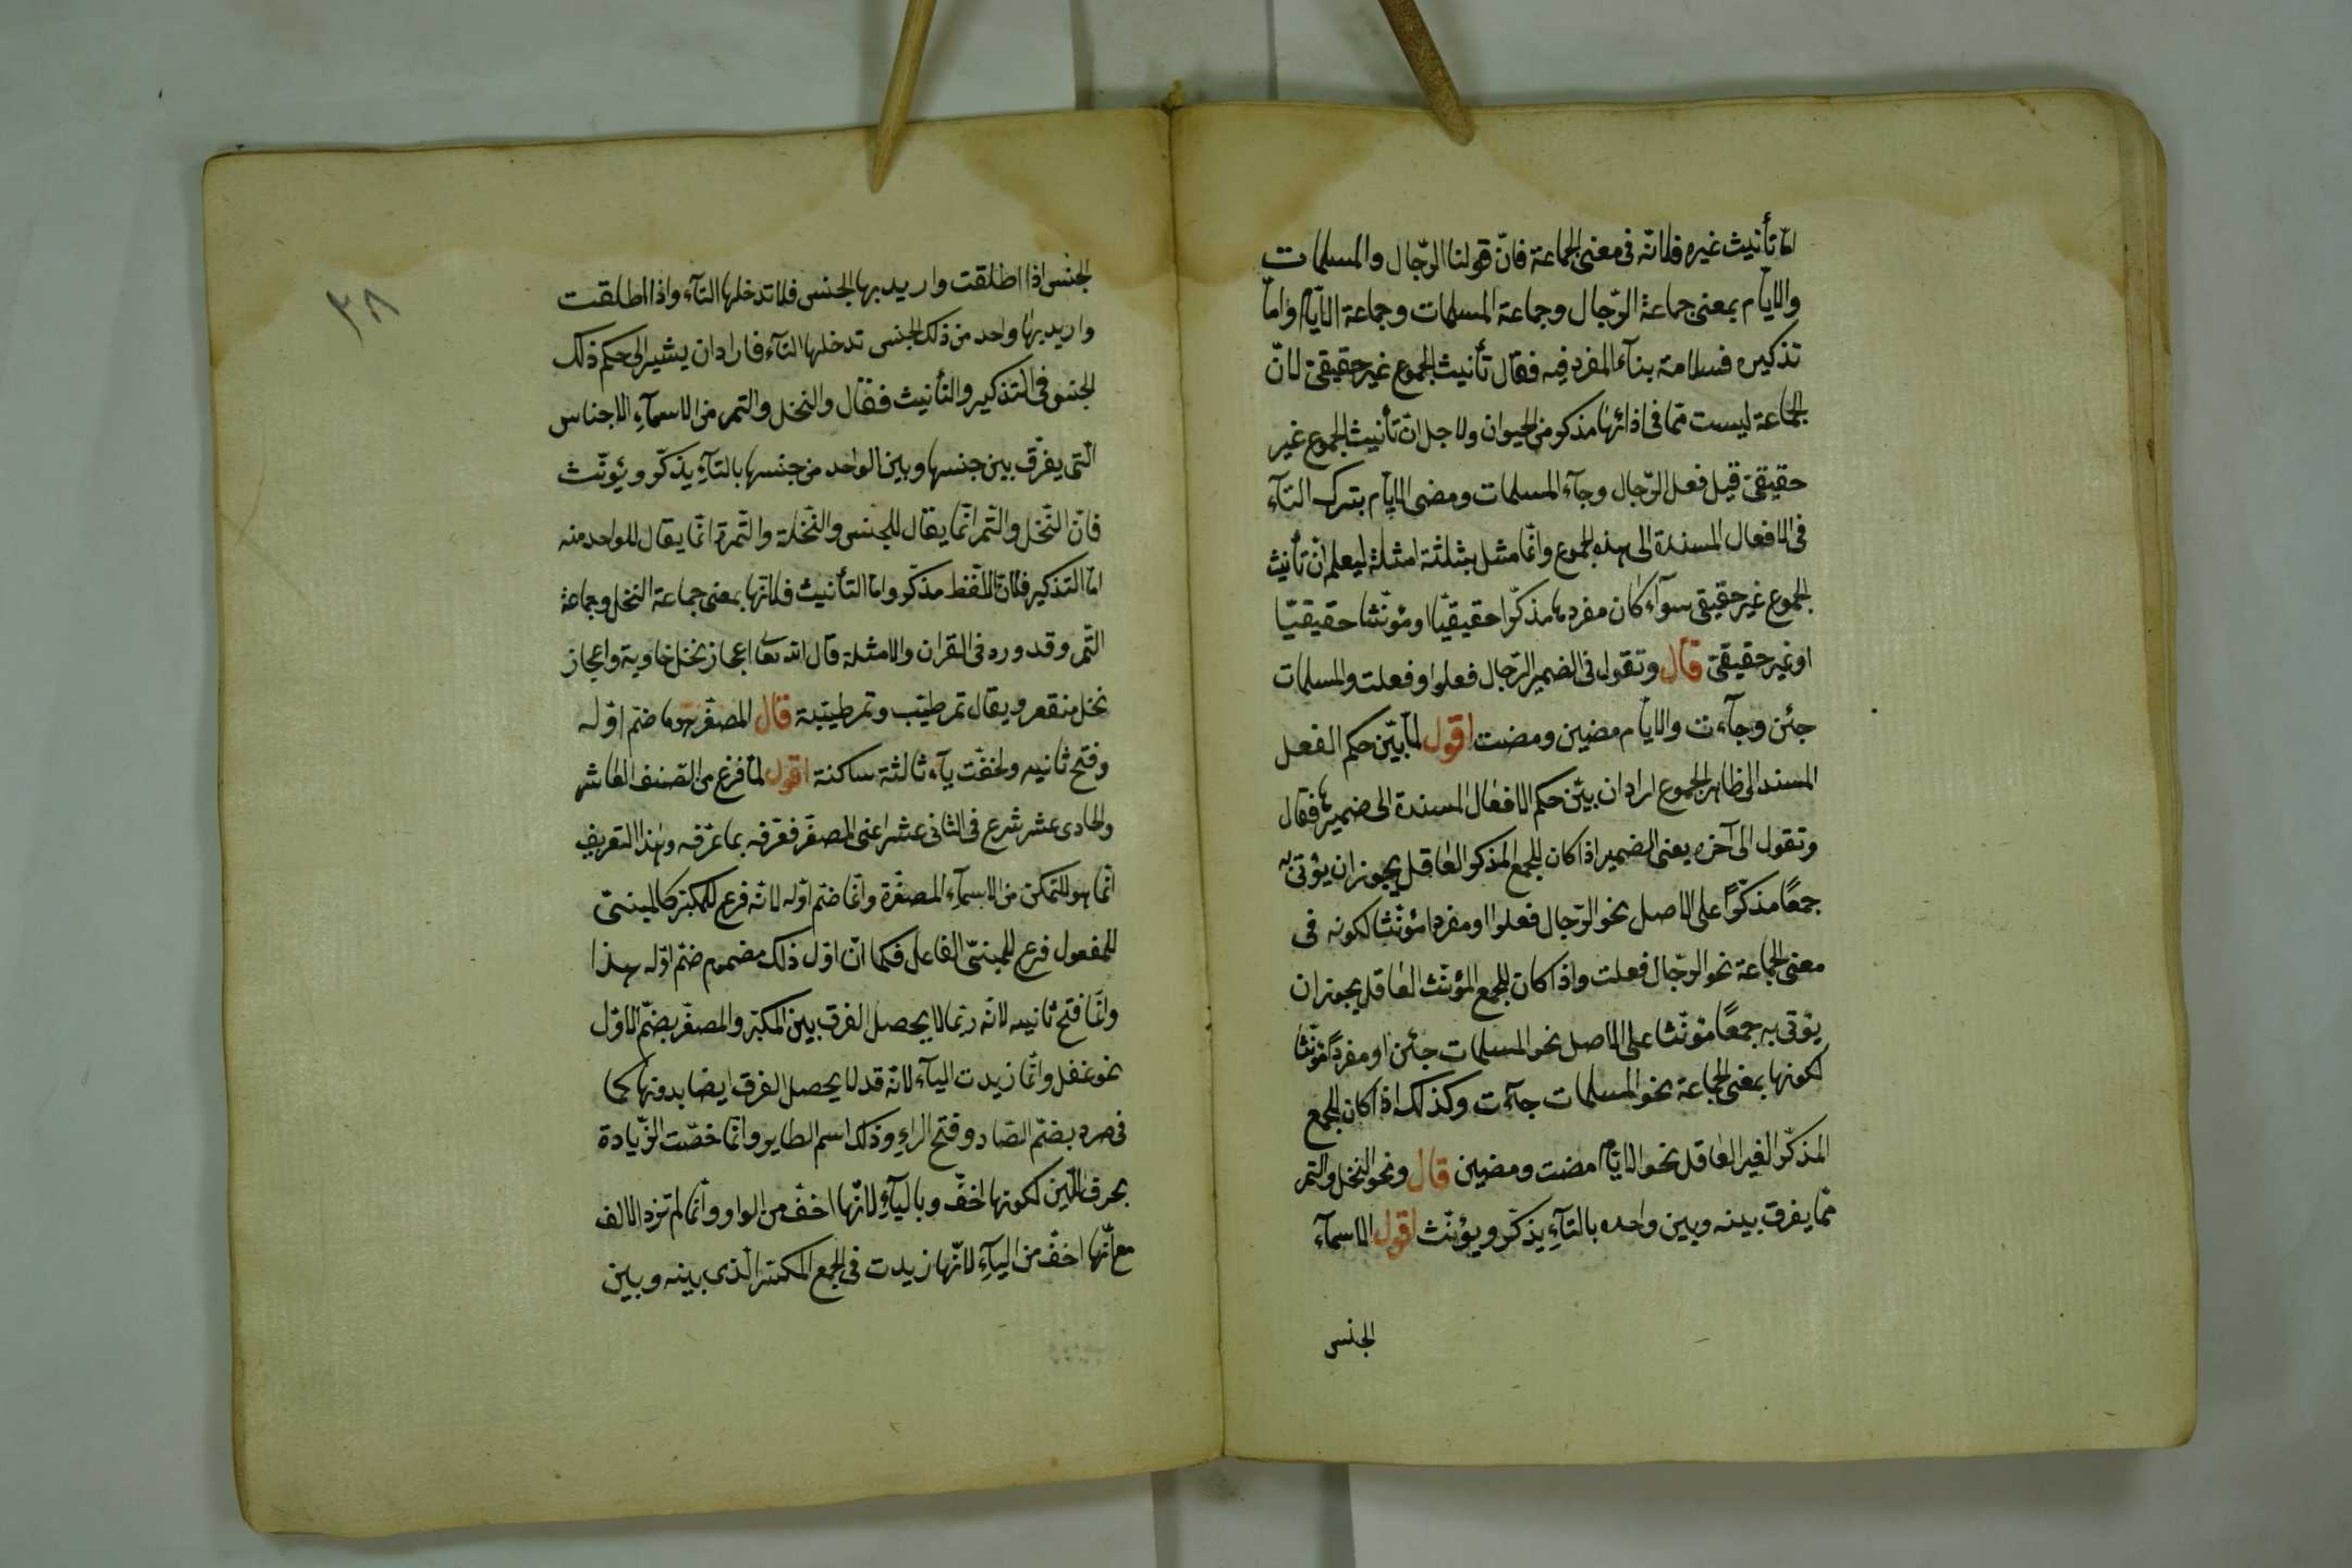 امّا تأنيث غيره فلانّه فى معنى الجماعة فانّ قولنا الرّجال والمسلمات
والايّام بمعنى جماعة الرّجال وجماعة المسلمات وجماعة الايّام وامّا
تذكيره فسلامة بنآء المفرد فيه فقال تأنيث الجموع غير حقيقىّ لانّ
الجماعة ليست ممّا فى اذائها مذكر من الحيوان ولاجل انّ تأنيث الجموع غير
حقيقىّ قيل فعل الرّجال وجآء المسلمات ومضى الايّام بترك التآء
فى الافعال المسندة الى هذه الجموع وانّما مثل بثلثة امثلة ليعلم انّ تأنيث
الجموع غير حقيقى سوآء كان مفردها مذكّرا حقيقيّا او مؤنّثا حقيقيّا
او غير حقيقىّ قال وتقول فى الضمير الرّجال فعلوا وفعلت والمسلمات
جئن وجآءت والايّام مضين ومضت اقول لمّا بيّن حكم الفعل
المسند الى ظاهر الجموع اراد ان يبيّن حكم الافعال المسندة الى ضميرها فقال
وتقول الى آخره يعنى الضمير اذا كان للجمع المذكر العاقل يجوز ان يؤتى به
جمعًا مذكّرًا على الاصل نحو الرّجال فعلوا او مفردا مؤنّثا لكونه فى
معنى الجماعة نحو الرّجال فعلت واذا كان للجمع المؤنّث العاقل يجوز ان
يؤتى به جمعًا مؤنّثا على الاصل نحو المسلمات جئن او مفردًا مؤنّثا
لكونها بمعنى الجماعة نحو المسلمات جآءت وكذلك اذا كان الجمع
المذكّر الغير العاقل نحو الايّام مضت ومضين قال ونحو النخل والتمر
ممّا يفرق بينه وبين واحده بالتآءِ يذكّر ويؤنّث اقول الاسمآء
الجنس
٣٨
الجنس اذا اطلقت واريد بها الجنس فلا تدخلها التآء واذا اطلقت
واريد بها واحد من ذلك الجنس تدخلها التآء فاراد ان يشير الى حكم ذلك
الجنس فى التذكير والتأنيث فقال والنخل والتمر من الاسمآءِ الاجناس
الّتى يفرق بين جنسها وبين الواحد من جنسها بالتآءِ يذكّر ويؤنّث
فانّ النّخل والتّمر انّما يقال للجنس والنّخلة والتّمرة انّما يقال للواحد منه
امّا التذكير فلانّ اللّفظ مذكّر وامّا التأنيث فلانّها بمعنى جماعة النخل وجماعة
التّمر وقد ورد فى القران والامثلة قال الله تعا اعجاز نخل خاوية واعجاز
نخل منقعر ويقال تمر طيّب وتمر طيّبة قال المصغّر هو ما ضمّ اوّله
وفتح ثانيه ولحقت يآء ثالثة ساكنة اقول لمّا فرغ من الصّنف العاشر
والحادى عشر شرع فى الثانى عشر اعنى المصغّر فعرّفه بما عرّفه وهٰذا التعريف
انّما هو للتمكن من الاسمآءِ المصغّرة وانّما ضمّ اوّله لانّه فرع للمكبّر كالمبنىّ
للمفعول فرع للمبنىّ الفاعل فكما انّ اوّل ذلك مضموم ضمّ اوّله هذا
وانّما فتح ثانيه لانّه ربّما لا يحصل الفرق بين المكبّر والمصغّر بضمّ الاوّل
نحو غفل وانّما زيدت اليآء لانّه قد لا يحصل الفرق ايضا بدونها كما
فى صرد بضمّ الصّاد وفتح الراءِ وذلك اسم الطاير وانّما خصّت الزّيادة
بحرف اللّين لكونها اخفّ وباليآءِ لانّها اخفّ من الواو وانّما لم تزد الالف
مع انّها اخفّ من اليآءِ لانّها زيدت فى الجمع المكسّر الّذى بينه وبين